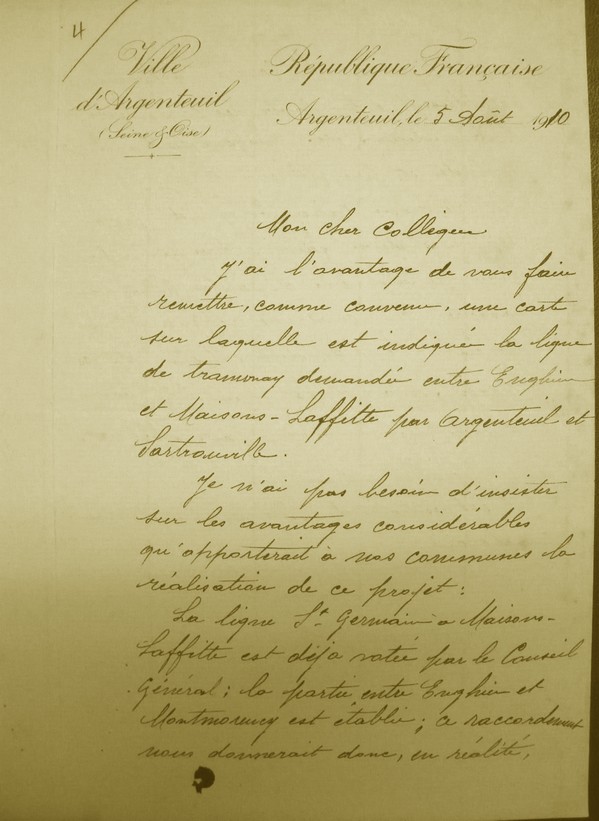 4
Ville
d'Argenteuil
(Seine & Oise)
République Française
Argenteuil, le 5 Août 1910
Mon cher Collègue
J'ai l'avantage de vous faire
remettre, comme convenu, une carte
sur laquelle est indiquée la ligne
de tramway demandée entre Enghien
et Maisons-Laffitte par Argenteuil et
Sartrouville.
Je n'ai pas besoin d'insister
sur les avantages considérables
qu'apporterait à nos communes la
réalisation de ce projet :
La ligne St Germain à Maisons-
Laffitte est déjà votée par le Conseil
Général ; la partie entre Enghien et
Montmorency est établie ; ce raccordement
nous donnerait donc, en réalité,